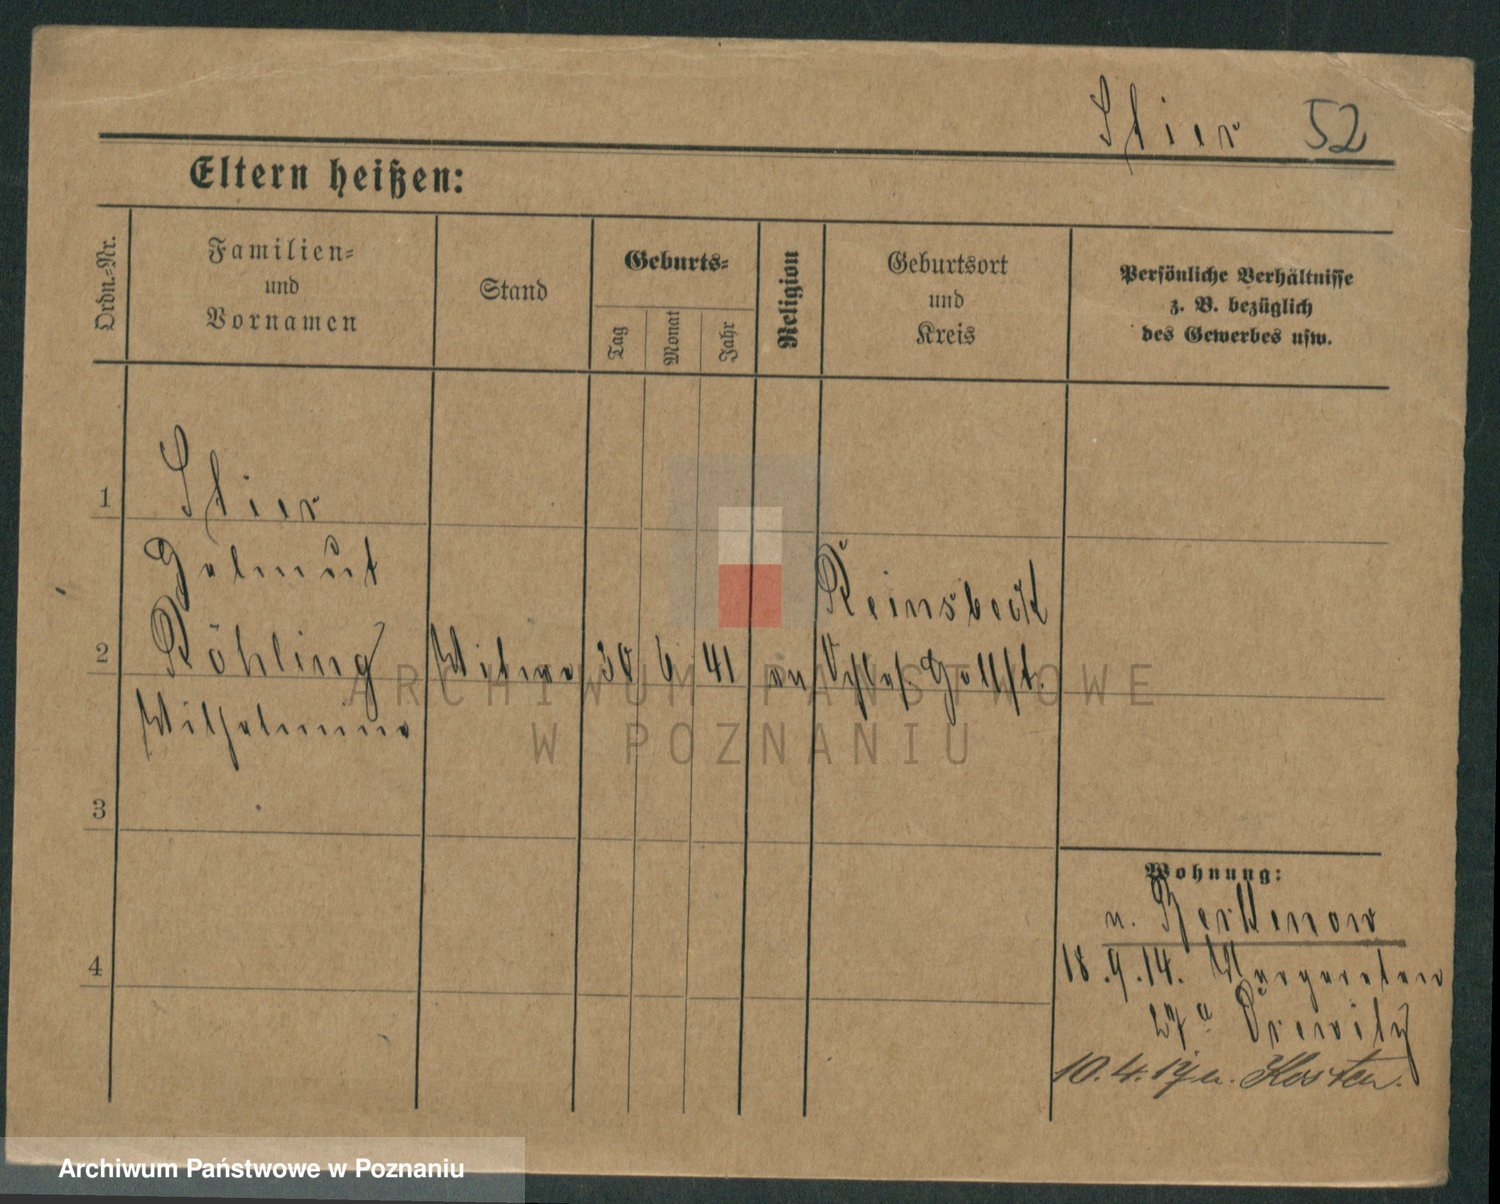 Stier 52
Eltern heißen:
Ordn.-Nr.
Familien-
und
Vornamen
Stand
Geburts-
Tag
Monat
Jahr
Religion
Geburtsort
und
Kreis
Persönliche Verhältnisse
z. B. bezüglich
des Gewerbes usw.
1 Stier
geb. Röhling
2 Witwe 30 6 41 ev Reinsbeck
Schlesw. Holst.
Wilhelmine
3
4
Wohnung:
n.
18.9.14. Margareten
27a
10.4.17 n. Kosten.
ARCHIWUM PAŃSTWOWE
W POZNANIU
Archiwum Państwowe w Poznaniu